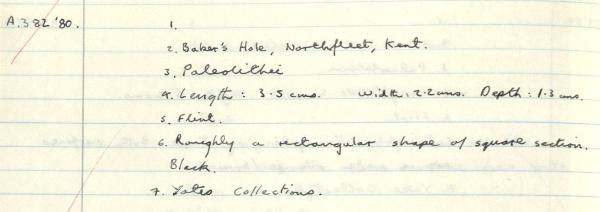 A.382 '80. 1.
2. Baker's Hole, Northfleet, Kent.
3. Paleolithic
4. Length : 3.5 cms. Width: 2.2 cms. Depth : 1.3 cms.
5. Flint.
6. Roughly a rectangular shape of square section.
Black.
7. Yates Collections.